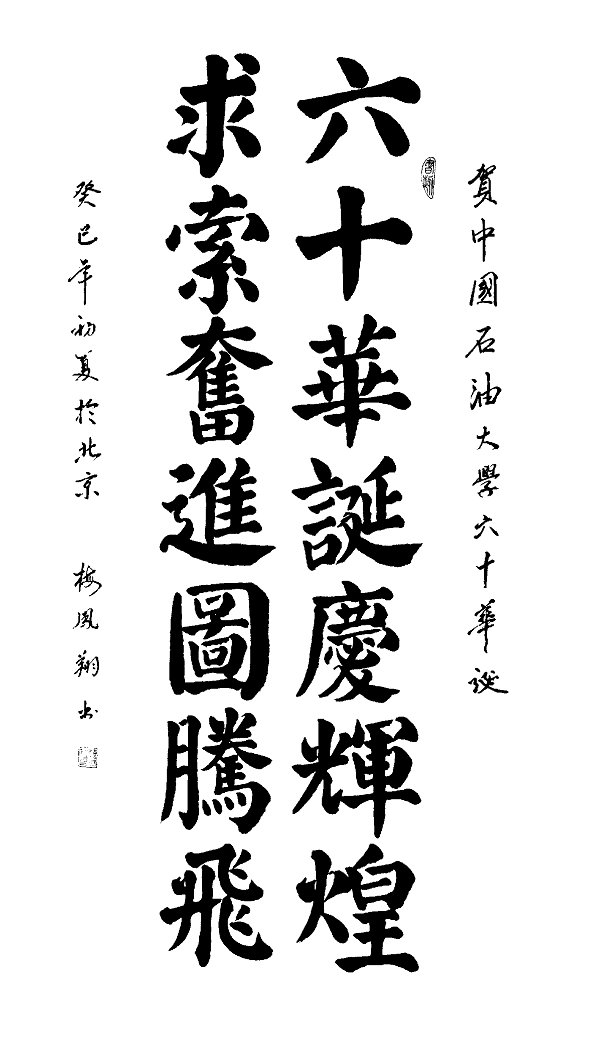 賀中國石油大學六十華誕
六十華誕慶輝煌
求索奮進圖騰飛
癸巳年初夏於北京 梅鳳翔书